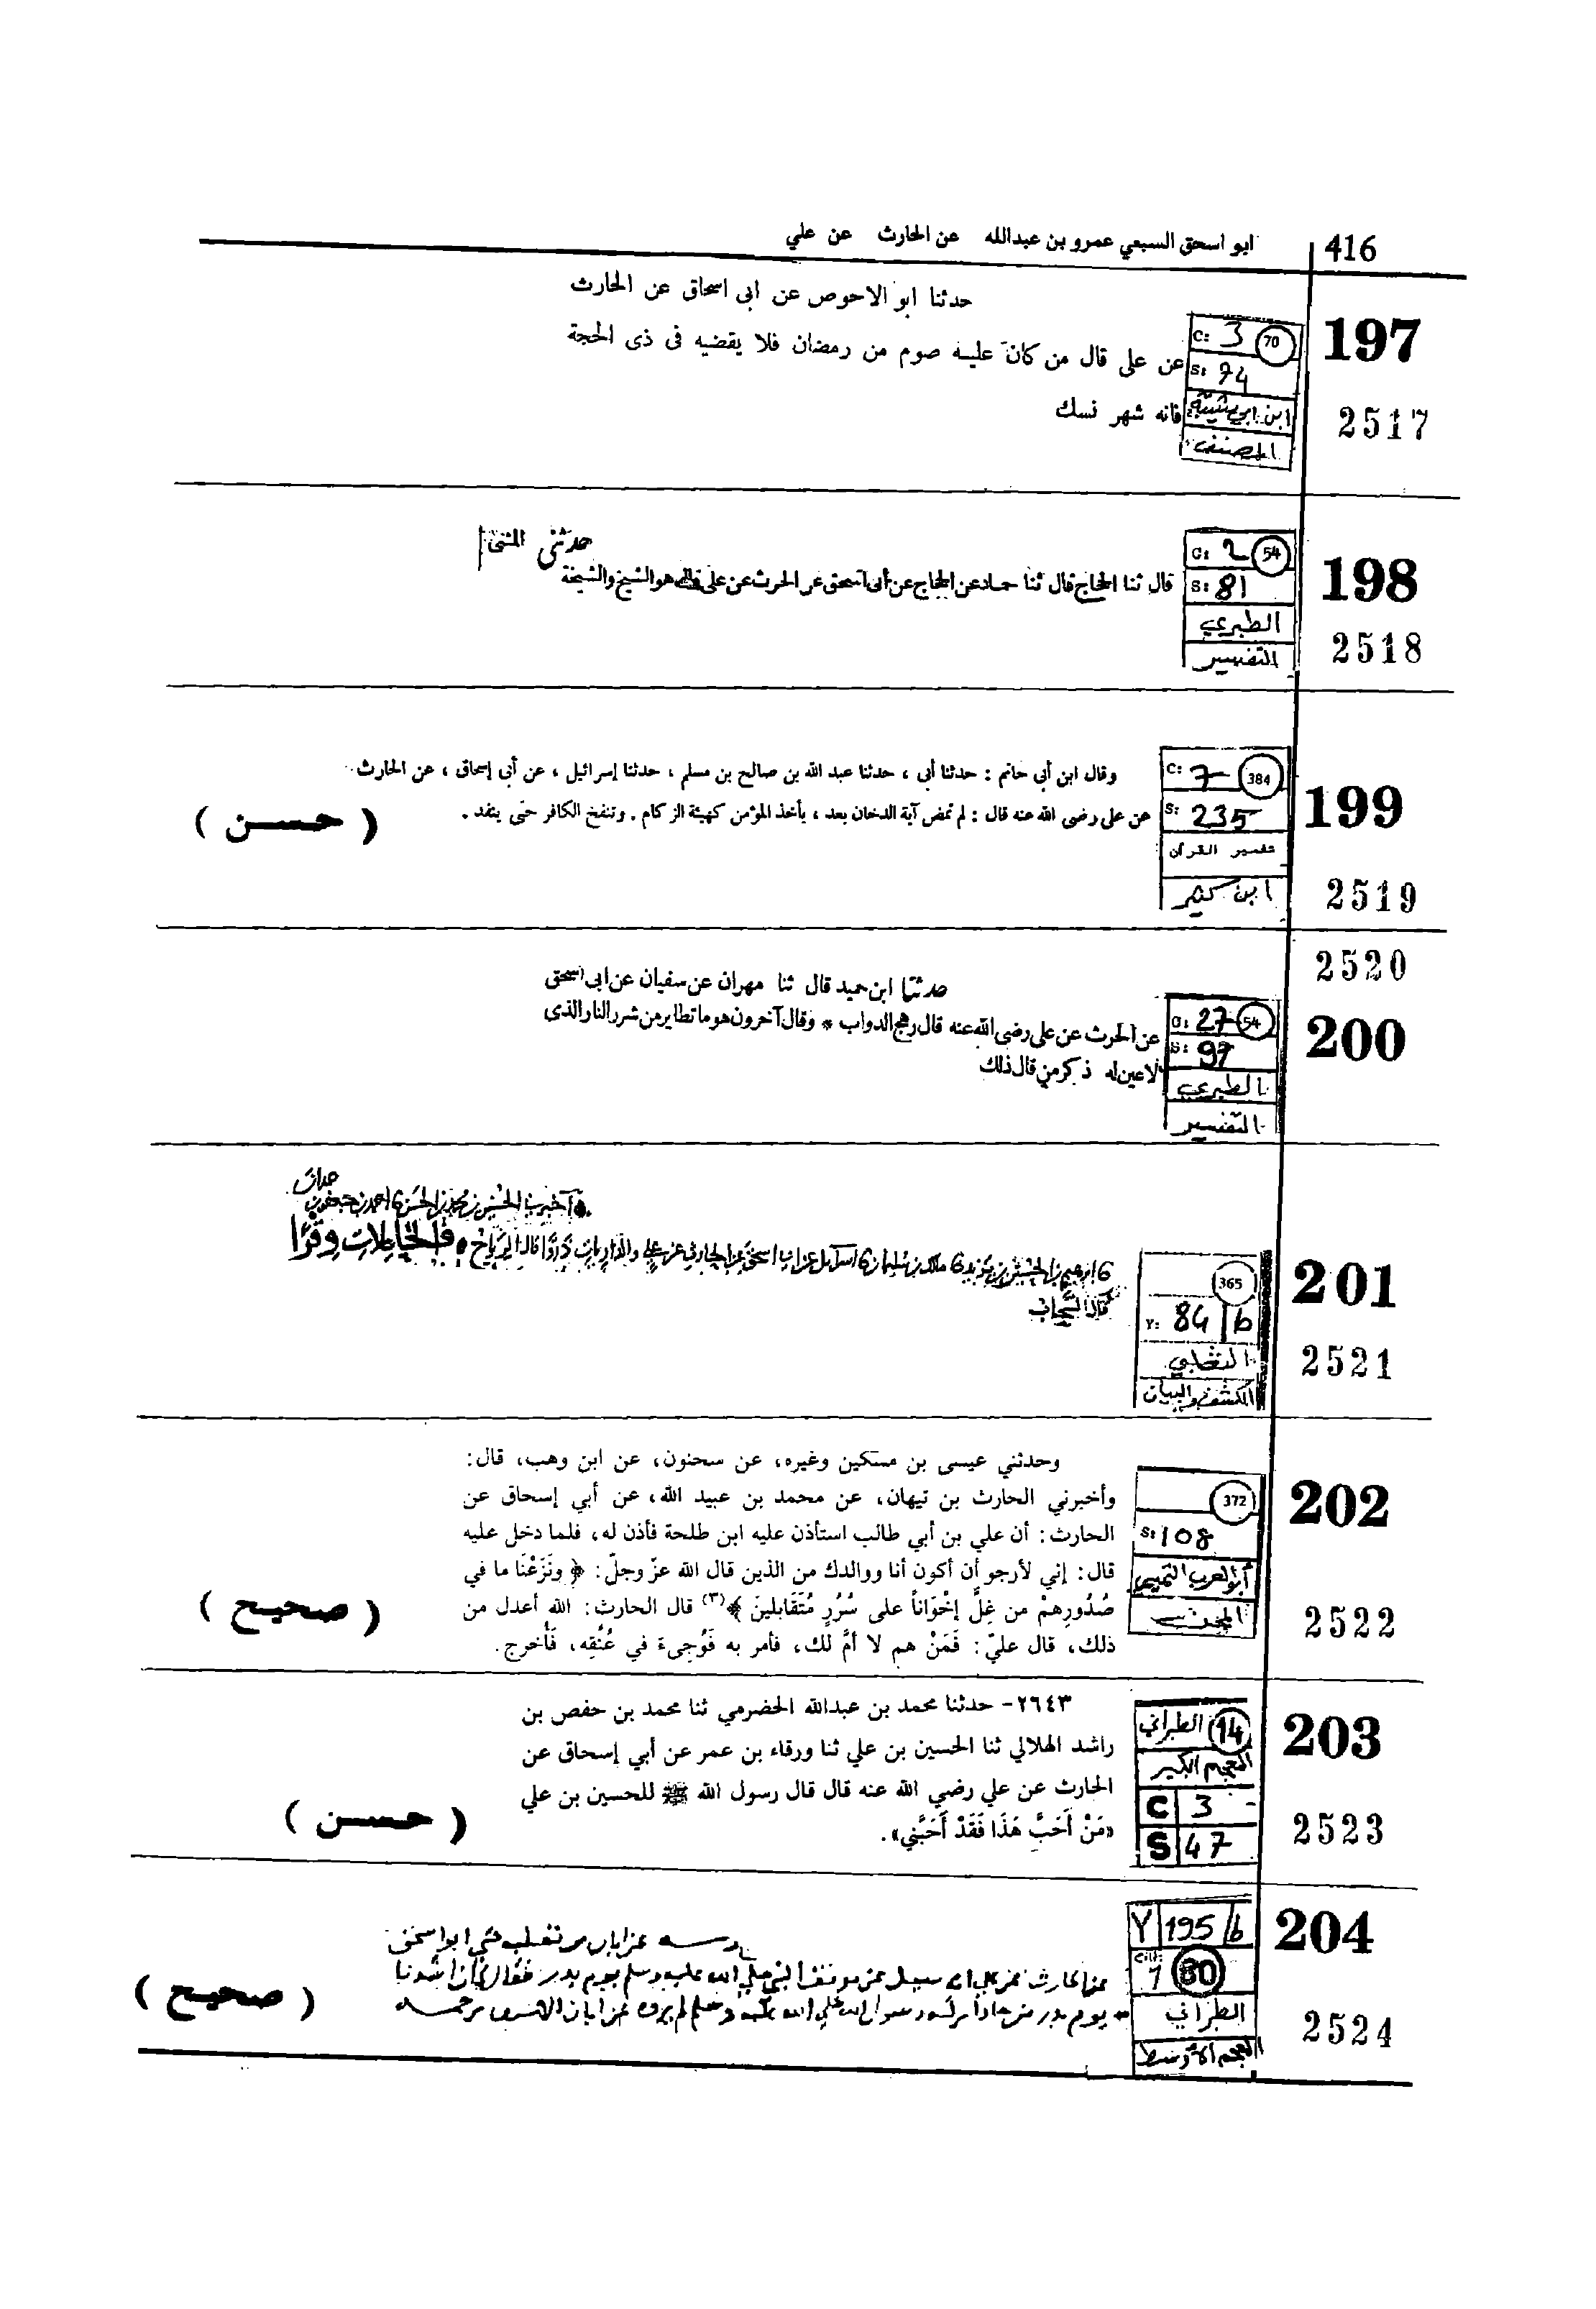 416
ابو اسحق السبعي عمرو بن عبدالله عن الحارث عن علي
197
2517
C: 3 70
S: 74
ابن ابي شيبة
المصنف
حدثنا ابو الاحوص عن ابى اسحاق عن الحارث
عن على قال من كان عليه صوم من رمضان فلا يقضيه فى ذى الحجة
فانه شهر نسك
198
2518
C: 2 54
S: 81
الطبري
التفسير
حدثنى المثنى
قال ثنا الحجاج قال ثنا حماد عن الحجاج عن أبى اسحق عن الحرث عن على قال هو الشيخ والشيخة
199
2519
C: 7 384
S: 235
تفسير القرآن
ابن كثير
وقال ابن أبي حاتم : حدثنا أبي ، حدثنا عبد الله بن صالح بن مسلم ، حدثنا إسرائيل ، عن أبي إسحاق ، عن الحارث
عن على رضى الله عنه قال : لم تمض آية الدخان بعد ، يأخذ المؤمن كهيئة الزكام . وتنفخ الكافر حتى ينفد .
( حسن )
2520
200
C: 27 54
S: 97
الطبري
التفسير
حدثنا ابن حميد قال ثنا مهران عن سفيان عن ابى اسحق
عن الحرث عن على رضى الله عنه قال رهج الدواب * وقال آخرون هو ما تطاير من شرر النار الذى
لا عين له ذكر من قال ذلك
201
2521
365
Y: 84 b
الثعلبي
الكشف والبيان
اسحق عن الحارث عن علي والذاريات ذروا قال الرياح فالحاملات وقرا
قال السحاب
202
2522
372
S: 108
أبو العرب التميمي
المحن
وحدثني عيسى بن مسكين وغيره، عن سحنون، عن ابن وهب، قال:
وأخبرني الحارث بن تيهان، عن محمد بن عبيد الله، عن أبي إسحاق عن
الحارث: أن علي بن أبي طالب استأذن عليه ابن طلحة فأذن له، فلما دخل عليه
قال: إني لأرجو أن أكون أنا ووالدك من الذين قال الله عزّ وجلّ: ﴿ ونَزَعْنَا ما في
صُدُورِهمْ من غِلٍّ إخْوَاناً على سُرُرٍ مُتَقَابلينَ ﴾(٣) قال الحارث: الله أعدل من
ذلك، قال عليّ: فَمَنْ هم لا أمَّ لك، فأمر به فَوُجِىءَ في عُنُقِه، فَأُخرج.
( صحيح )
203
2523
14 الطبراني
المعجم الكبير
C 3
S 47
٢٦٤٣- حدثنا محمد بن عبدالله الحضرمي ثنا محمد بن حفص بن
راشد الهلالي ثنا الحسين بن علي ثنا ورقاء بن عمر عن أبي إسحاق عن
الحارث عن علي رضي الله عنه قال قال رسول الله ﷺ للحسين بن علي
«مَنْ أَحَبَّ هَذَا فَقَدْ أَحَبَّني».
( حسن )
204
2524
Y 195 b
Cilt: 1 80
الطبراني
المعجم الأوسط
عن ابان بن تغلب حدثني ابو اسحق
عن الحارث عن علي سئل عن موقف النبي صلى الله عليه وسلم يوم بدر فقال كان اشدنا
يوم بدر من حاذا رسول الله صلى الله عليه وسلم لم يروه عن ابان الا
( صحيح )